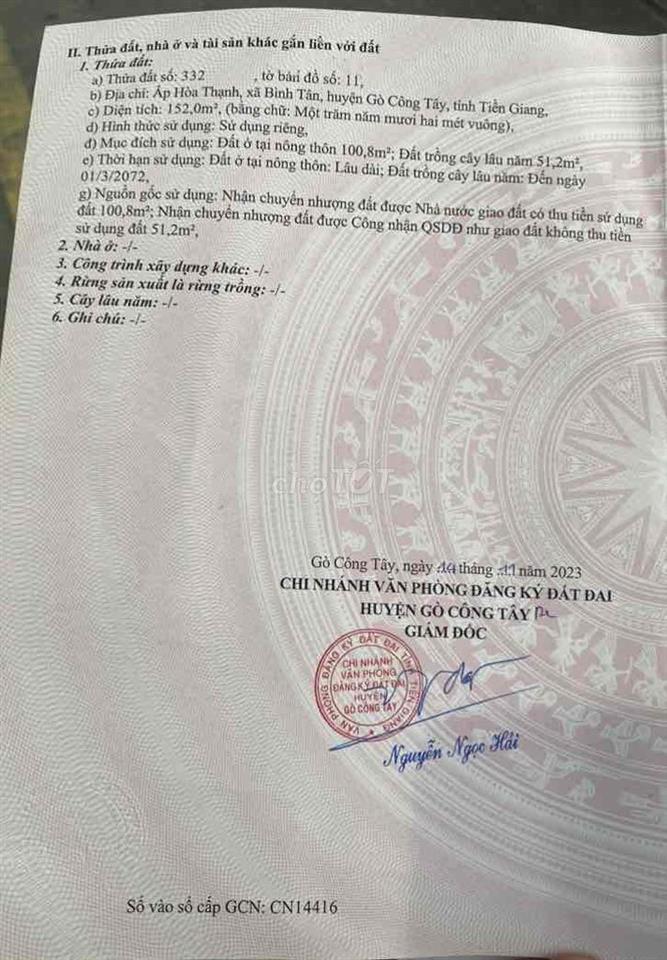 II. Thửa đất, nhà ở và tài sản khác gắn liền với đất
1. Thửa đất:
a) Thửa đất số: 332 , tờ bản đồ số: 11,
b) Địa chỉ: Ấp Hòa Thạnh, xã Bình Tân, huyện Gò Công Tây, tỉnh Tiền Giang,
c) Diện tích: 152,0m², (bằng chữ: Một trăm năm mươi hai mét vuông),
d) Hình thức sử dụng: Sử dụng riêng,
đ) Mục đích sử dụng: Đất ở tại nông thôn 100,8m²; Đất trồng cây lâu năm 51,2m²,
e) Thời hạn sử dụng: Đất ở tại nông thôn: Lâu dài; Đất trồng cây lâu năm: Đến ngày
01/3/2072,
g) Nguồn gốc sử dụng: Nhận chuyển nhượng đất được Nhà nước giao đất có thu tiền sử dụng
đất 100,8m²; Nhận chuyển nhượng đất được Công nhận QSDĐ như giao đất không thu tiền
sử dụng đất 51,2m²,
2. Nhà ở: -/-
3. Công trình xây dựng khác: -/-
4. Rừng sản xuất là rừng trồng: -/-
5. Cây lâu năm: -/-
6. Ghi chú: -/-
choTỐT
Gò Công Tây, ngày tháng 11 năm 2023
CHI NHÁNH VĂN PHÒNG ĐĂNG KÝ ĐẤT ĐAI
HUYỆN GÒ CÔNG TÂY
GIÁM ĐỐC
VĂN PHÒNG ĐĂNG KÝ ĐẤT ĐAI TỈNH TIỀN GIANG
CHI NHÁNH
VĂN PHÒNG
ĐĂNG KÝ ĐẤT ĐAI
HUYỆN
GÒ CÔNG TÂY
Nguyễn Ngọc Hải
Số vào sổ cấp GCN: CN14416